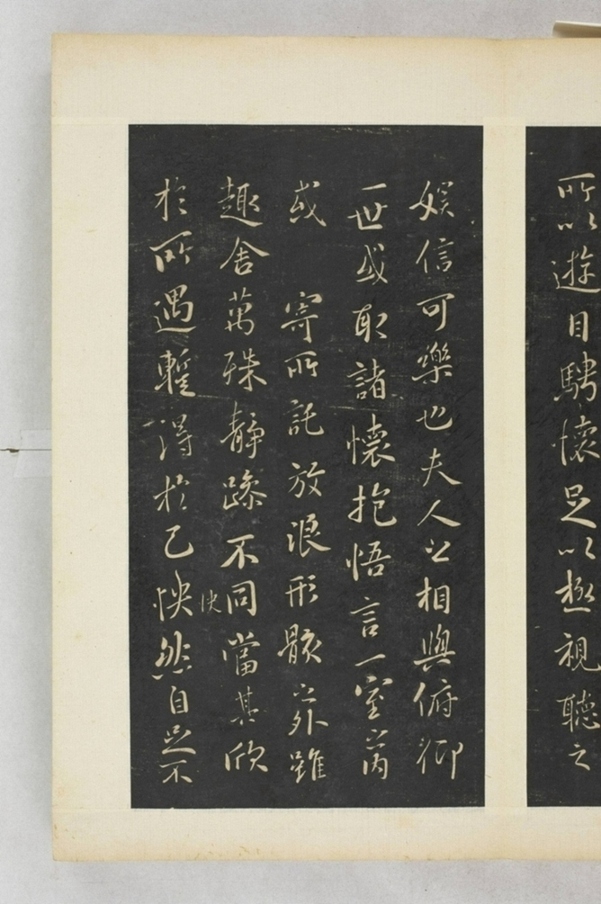 所以遊目騁懷足以極視聽之
娛信可樂也夫人之相與俯仰
一世或取諸懷抱悟言一室之內
或寄所託放浪形骸之外雖
趣舍萬殊静躁不同當其欣
快
於所遇蹔得於己怏然自足不